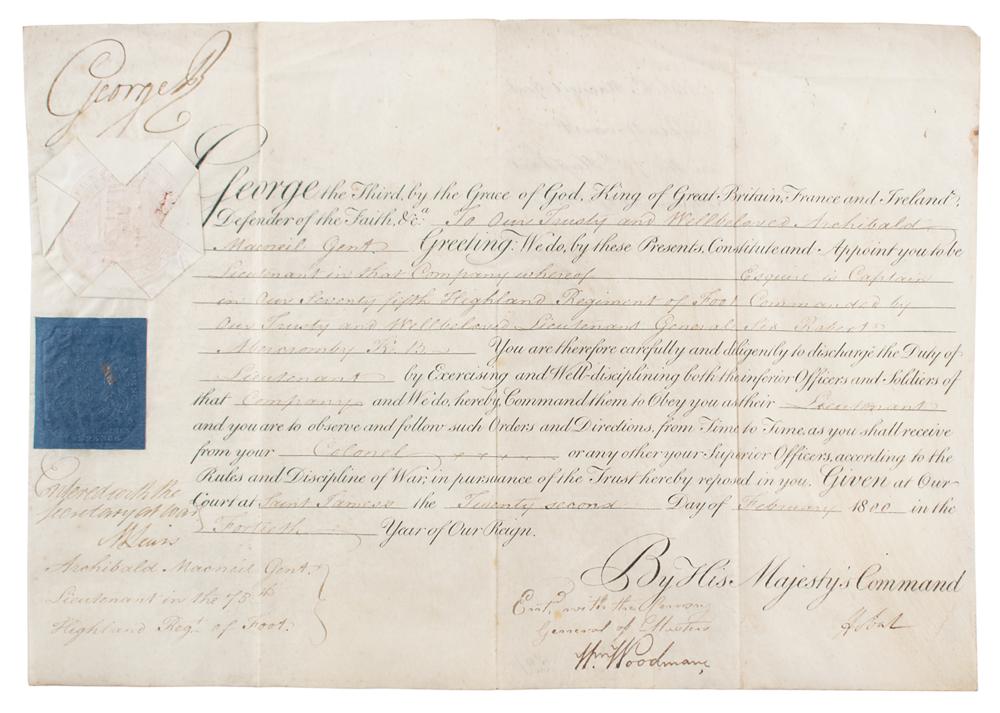 George R
George the Third, by the Grace of God, King of Great Britain, France and Ireland,
Defender of the Faith, &c.ª To Our Trusty and Wellbeloved Archibald
Macneil Gent Greeting: We do, by these Presents, Constitute and Appoint you to be
Lieutenant in that Company whereof Esquire is Captain
in Our Seventy fifth Highland Regiment of Foot Commanded by
Our Trusty and Wellbeloved Lieutenant General Sir Robert
Abercromby K. B. You are therefore carefully and diligently to discharge the Duty of
Lieutenant by Exercising and Well-disciplining both the inferior Officers and Soldiers of
that Company and We do, hereby, Command them to Obey you as their Lieutenant
and you are to observe and follow such Orders and Directions, from Time to Time, as you shall receive
from your Colonel or any other your Superior Officers, according to the
Rules and Discipline of War, in pursuance of the Trust hereby reposed in you. Given at Our
Court at Saint James's the Twenty second Day of February 1800 in the
Fortieth Year of Our Reign.
By His Majesty's Command
Entered with the
Secretary at War
M Lewis
Archibald Macneil Gent.
Lieutenant in the 75th
Highland Regt. of Foot.
Entd. with the
General of Musters
Wm Woodman,